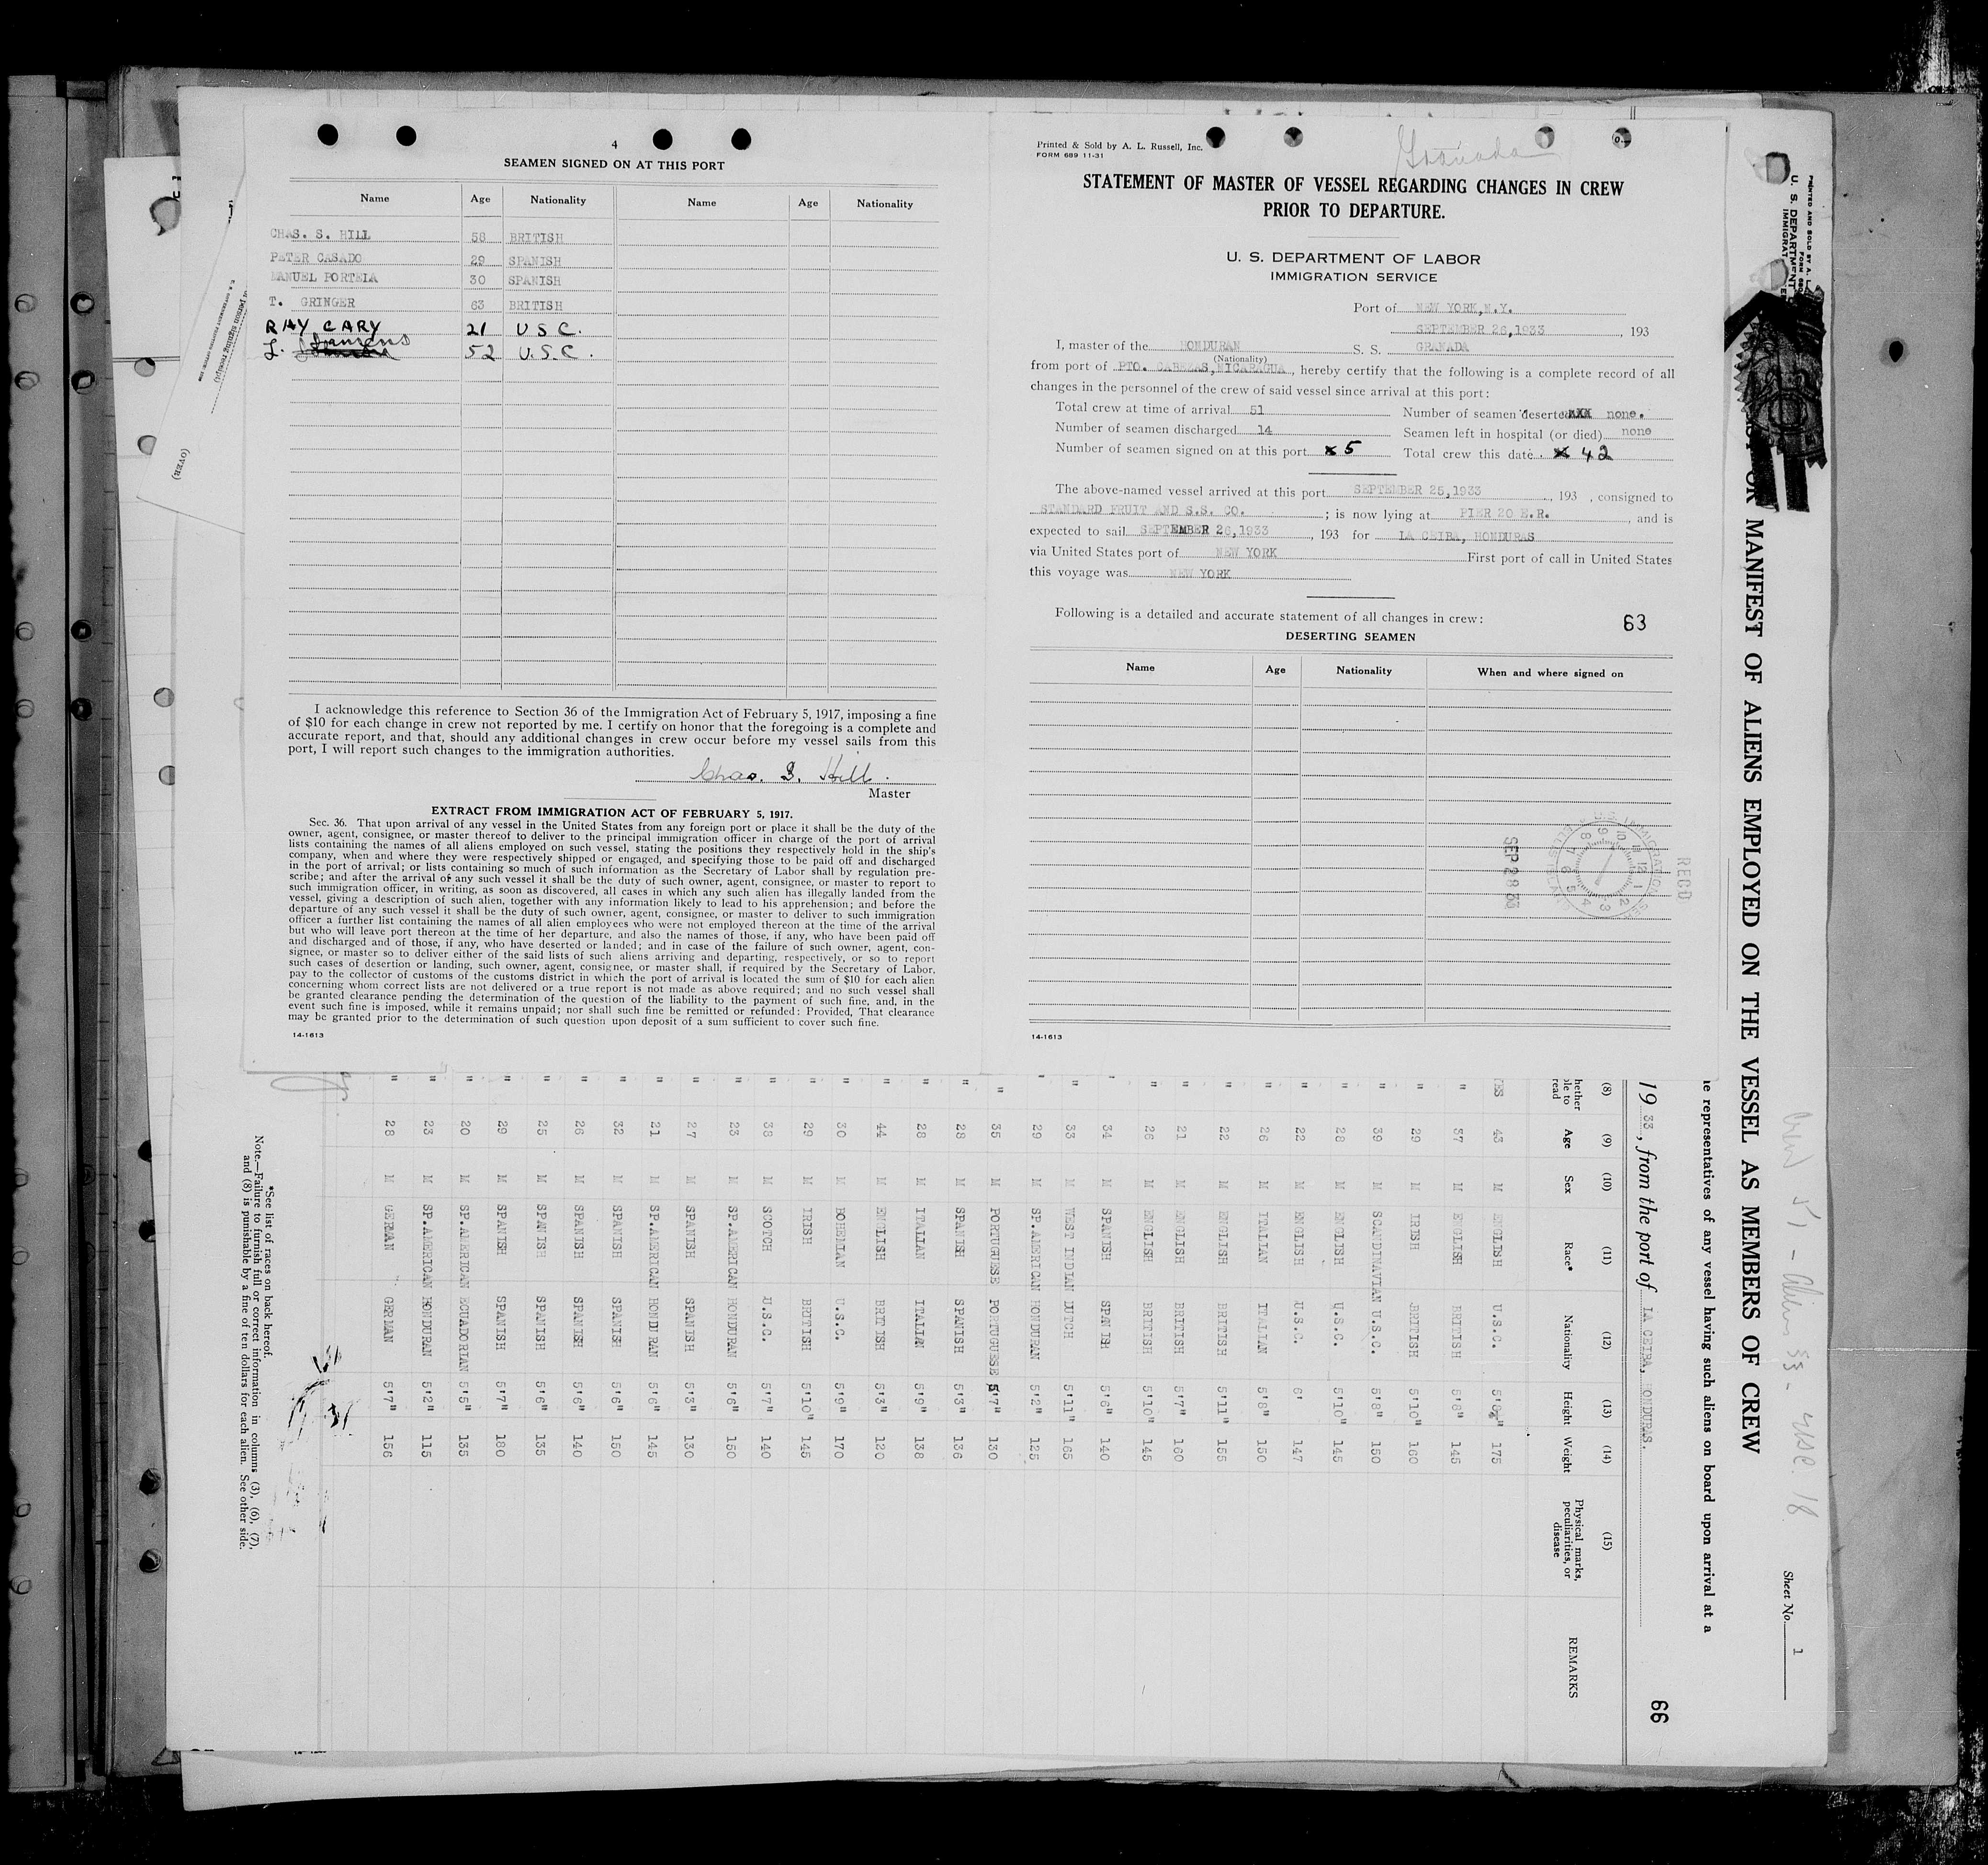 4
SEAMEN SIGNED ON AT THIS PORT
Name Age Nationality Name Age Nationality
CHAS. S. HILL 58 BRITISH
PETER CASADO 29 SPANISH
MANUEL PORTELA 30 SPANISH
T. GRINGER 63 BRITISH
RAY CARY 21 U S C.
L. 52 U.S.C.
I acknowledge this reference to Section 36 of the Immigration Act of February 5, 1917, imposing a fine
of $10 for each change in crew not reported by me. I certify on honor that the foregoing is a complete and
accurate report, and that, should any additional changes in crew occur before my vessel sails from this
port, I will report such changes to the immigration authorities.
Chas. S. Hill.
Master
EXTRACT FROM IMMIGRATION ACT OF FEBRUARY 5, 1917.
Sec. 36. That upon arrival of any vessel in the United States from any foreign port or place it shall be the duty of the
owner, agent, consignee, or master thereof to deliver to the principal immigration officer in charge of the port of arrival
lists containing the names of all aliens employed on such vessel, stating the positions they respectively hold in the ship's
company, when and where they were respectively shipped or engaged, and specifying those to be paid off and discharged
in the port of arrival; or lists containing so much of such information as the Secretary of Labor shall by regulation pre-
scribe; and after the arrival of any such vessel it shall be the duty of such owner, agent, consignee, or master to report to
such immigration officer, in writing, as soon as discovered, all cases in which any such alien has illegally landed from the
vessel, giving a description of such alien, together with any information likely to lead to his apprehension; and before the
departure of any such vessel it shall be the duty of such owner, agent, consignee, or master to deliver to such immigration
officer a further list containing the names of all alien employees who were not employed thereon at the time of the arrival
but who will leave port thereon at the time of her departure, and also the names of those, if any, who have been paid off
and discharged and of those, if any, who have deserted or landed; and in case of the failure of such owner, agent, con-
signee, or master so to deliver either of the said lists of such aliens arriving and departing, respectively, or so to report
such cases of desertion or landing, such owner, agent, consignee, or master shall, if required by the Secretary of Labor,
pay to the collector of customs of the customs district in which the port of arrival is located the sum of $10 for each alien
concerning whom correct lists are not delivered or a true report is not made as above required; and no such vessel shall
be granted clearance pending the determination of the question of the liability to the payment of such fine, and, in the
event such fine is imposed, while it remains unpaid; nor shall such fine be remitted or refunded: Provided, That clearance
may be granted prior to the determination of such question upon deposit of a sum sufficient to cover such fine.
14-1613
Printed & Sold by A. L. Russell, Inc.
FORM 689 11-31
Granada
STATEMENT OF MASTER OF VESSEL REGARDING CHANGES IN CREW
PRIOR TO DEPARTURE.
U. S. DEPARTMENT OF LABOR
IMMIGRATION SERVICE
Port of NEW YORK,N.Y.
SEPTEMBER 26,1933, 193
I, master of the HONDURAN S. S. GRANADA
(Nationality)
from port of PTO. CABEZAS,NICARAGUA, hereby certify that the following is a complete record of all
changes in the personnel of the crew of said vessel since arrival at this port:
Total crew at time of arrival 51 Number of seamen deserted none.
Number of seamen discharged 14 Seamen left in hospital (or died) none
Number of seamen signed on at this port 5 Total crew this date 42
The above-named vessel arrived at this port SEPTEMBER 25,1933, 193 , consigned to
STANDARD FRUIT AND S.S. CO. ; is now lying at PIER 20 E.R. , and is
expected to sail SEPTEMBER 26,1933, 193 for LA CEIBA, HONDURAS
via United States port of NEW YORK First port of call in United States
this voyage was NEW YORK
Following is a detailed and accurate statement of all changes in crew: 63
DESERTING SEAMEN
Name Age Nationality When and where signed on
SEP 28 33
RECD
14-1613
PRINTED AND SOLD BY A. L.
FORM 680
U. S. DEPARTMENT
IMMIGRAT
MANIFEST OF ALIENS EMPLOYED ON THE VESSEL AS MEMBERS OF CREW
Crew 51 - Aliens 33 - USC. 18
Sheet No. 1
representatives of any vessel having such aliens on board upon arrival at a
1933, from the port of LA CEIBA, HONDURAS.
66
(8) (9) (10) (11) (12) (13) (14) (15)
hether
le to
read
Age Sex Race* Nationality Height Weight Physical marks, peculiarities, or disease REMARKS
YES 43 M ENGLISH U.S.C. 5'8" 175
" 37 M ENGLISH BRITISH 5'8" 145
" 29 M IRISH BRITISH 5'10" 160
" 39 M SCANDINAVIAN U.S.C. 5'8" 150
" 28 M ENGLISH U.S.C. 5'10" 145
" 22 M ENGLISH U.S.C. 6' 147
" 26 M ITALIAN ITALIAN 5'8" 150
" 22 M ENGLISH BRITISH 5'11" 155
" 21 M ENGLISH BRITISH 5'7" 160
" 26 M ENGLISH BRITISH 5'10" 145
" 34 M SPANISH SPANISH 5'6" 140
" 33 M WEST INDIAN DUTCH 5'11" 165
" 29 M SP.AMERICAN HONDURAN 5'2" 125
" 35 M PORTUGUESE PORTUGUESE 5'7" 130
" 28 M SPANISH SPANISH 5'3" 136
" 28 M ITALIAN ITALIAN 5'9" 138
" 44 M ENGLISH BRITISH 5'3" 120
" 30 M BOHEMIAN U.S.C. 5'9" 170
" 29 M IRISH BRITISH 5'10" 145
" 38 M SCOTCH U.S.C. 5'7" 140
" 23 M SP.AMERICAN HONDURAN 5'6" 150
" 27 M SPANISH SPANISH 5'3" 130
" 21 M SP.AMERICAN HONDURAN 5'6" 145
" 32 M SPANISH SPANISH 5'6" 150
" 26 M SPANISH SPANISH 5'6" 140
" 25 M SPANISH SPANISH 5'6" 135
" 29 M SPANISH SPANISH 5'7" 180
" 20 M SP.AMERICAN ECUADORIAN 5'5" 135
" 23 M SP.AMERICAN HONDURAN 5'2" 115
" 28 M GERMAN GERMAN 5'7" 156
*See list of races on back hereof.
Note.—Failure to furnish full or correct information in columns (3), (6), (7),
and (8) is punishable by a fine of ten dollars for each alien. See other side.
(OVER)